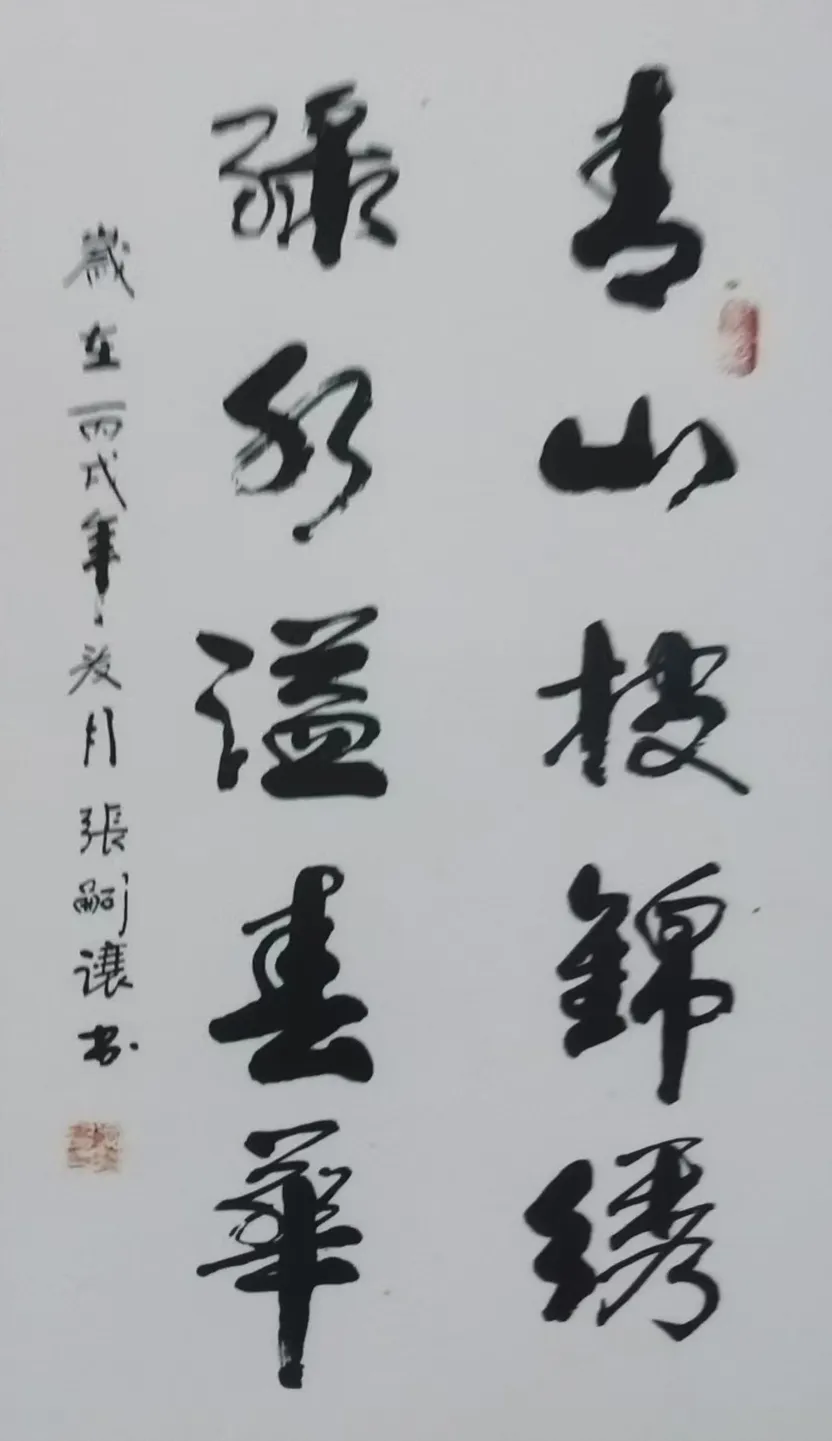 青山披錦綉
綠水溢春華
歲在丙戌年夏月張嗣讓书